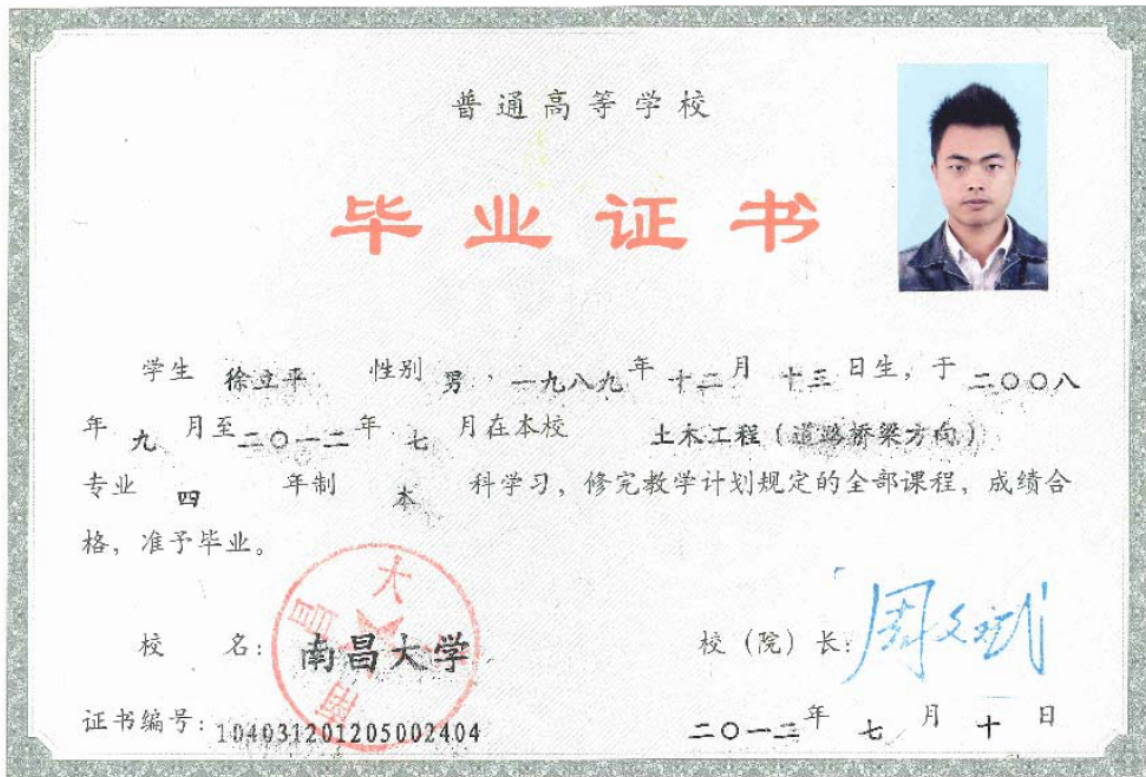 普通高等学校
毕业证书
学生 徐立平 性别 男，一九八九年十二月十三日生，于二〇〇八
年九月至二〇一二年七月在本校 土木工程（道路桥梁方向）
专业 四 年制 本 科学习，修完教学计划规定的全部课程，成绩合
格，准予毕业。
南昌大
校 名：南昌大学
校（院）长：周文斌
证书编号：104031201205002404
二〇一二年七月十日